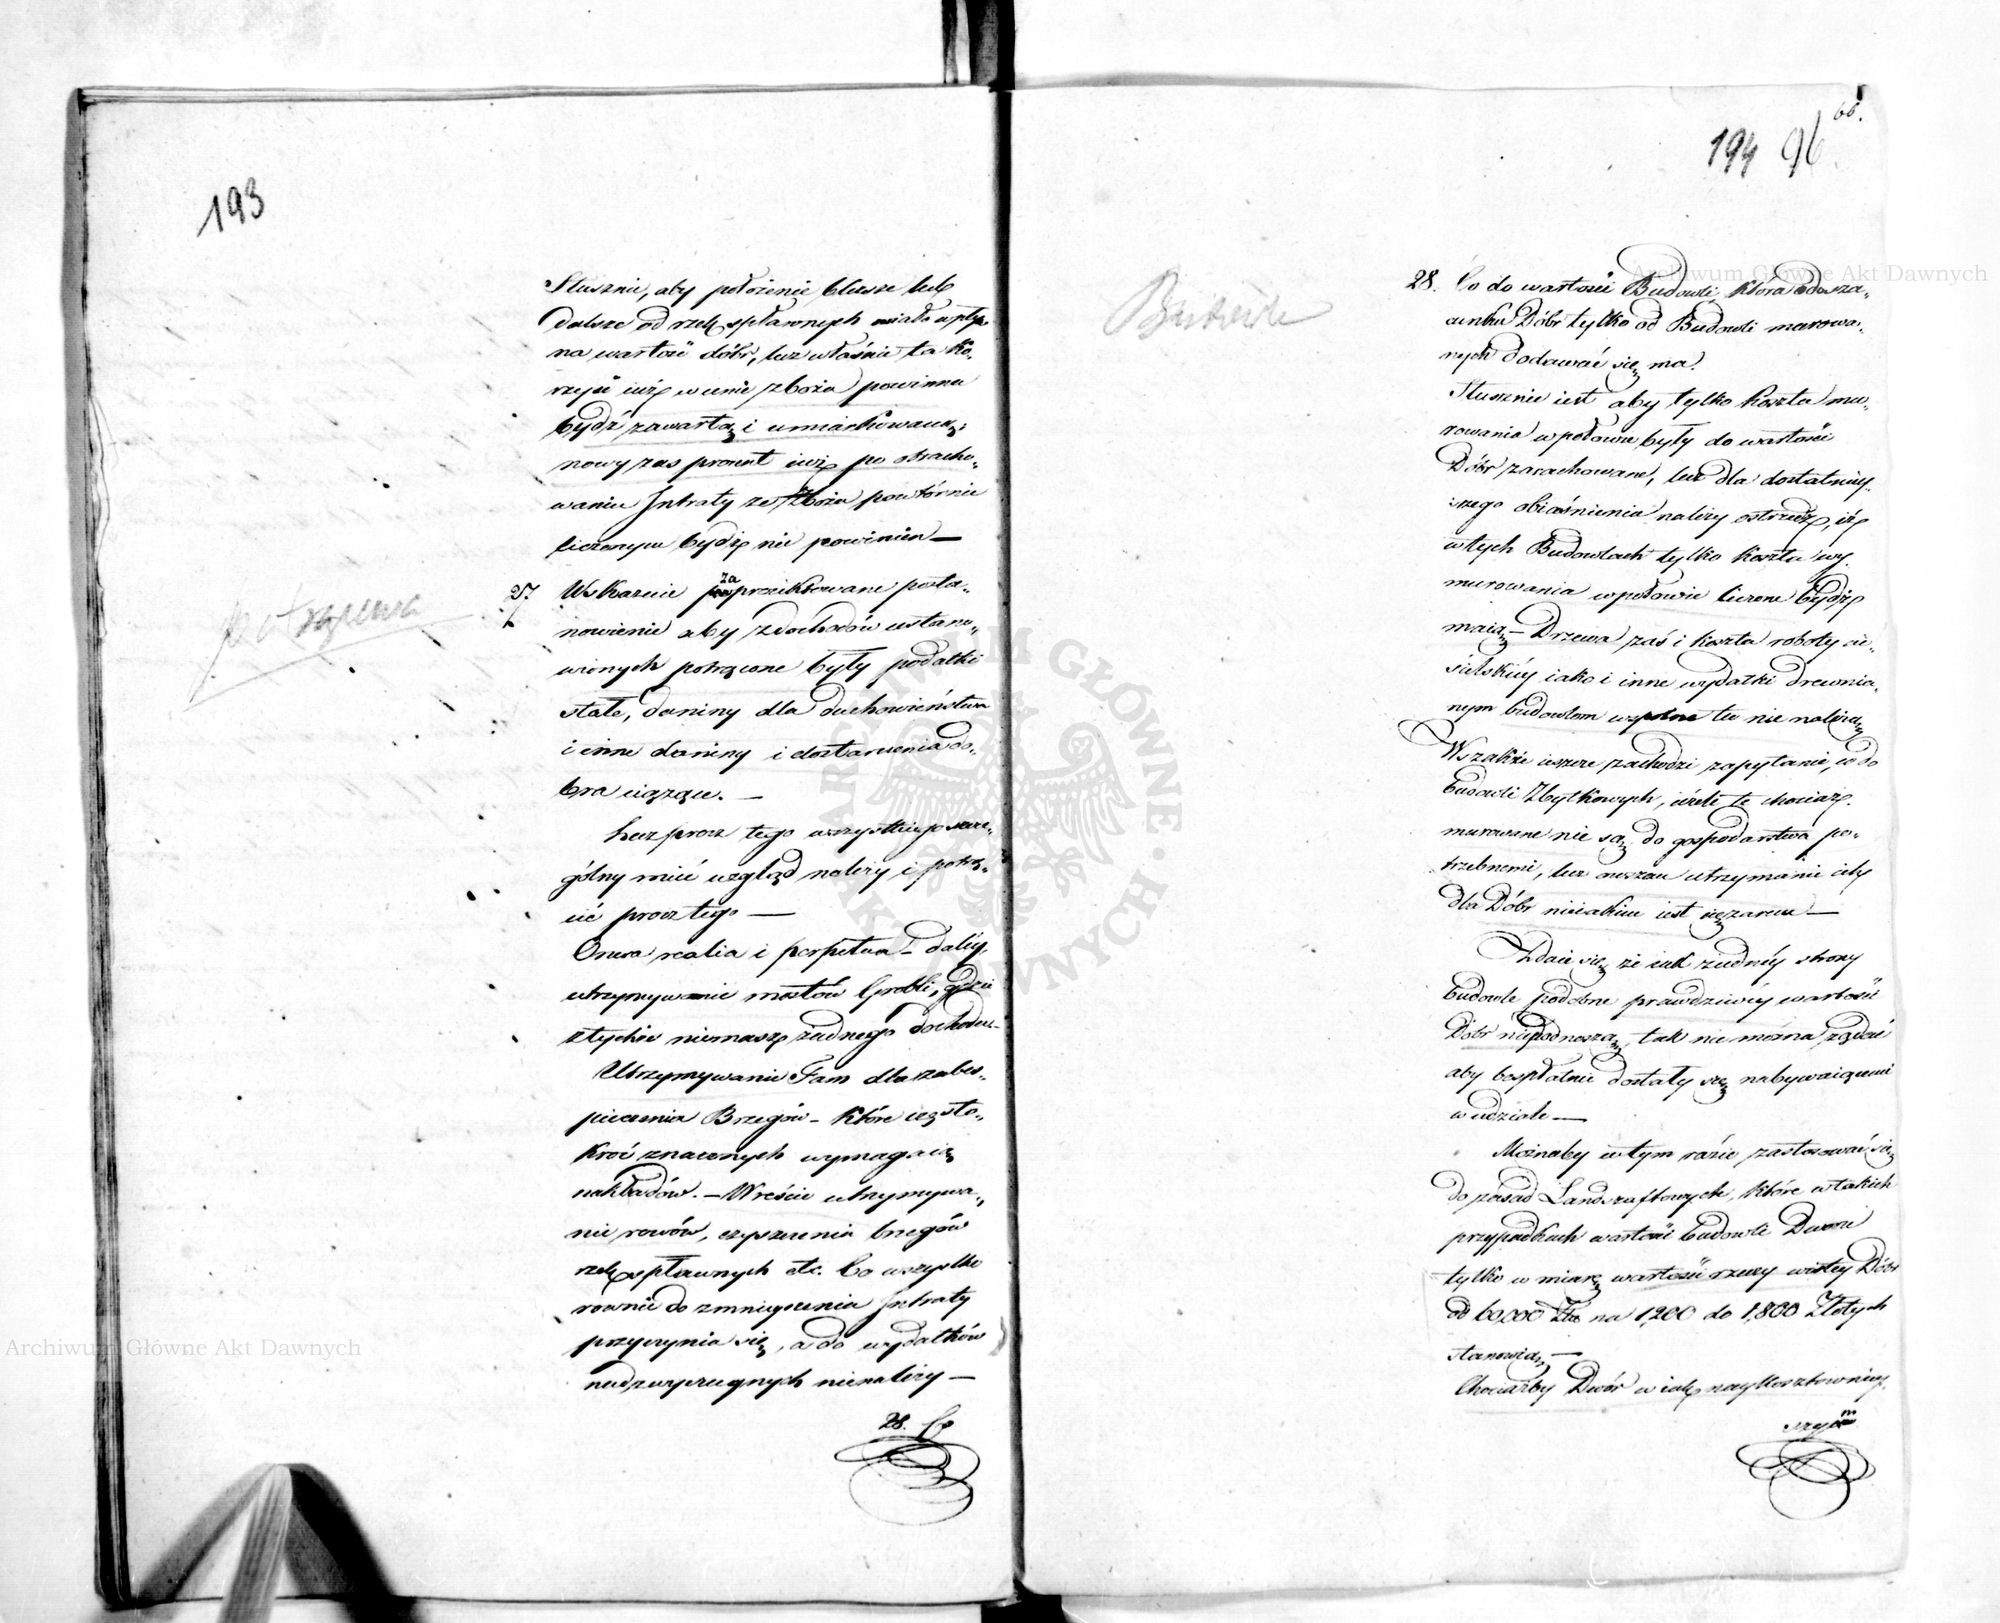 193
Słusznie, aby położenie bliższe lub
dalsze od rzek spławnych miało wpływ
na wartość dóbr, lecz właśnie ta ko„
rzyść iuż w cenie zboża powinna
bydź zawartą i umiarkowaną;
nowy zas procent iuż po obracho„
waniu Intraty ze zboża powtórnie
liczonym bydź nie powinien —
27. Wskazuie za prozaktowane posta„
nowienie aby z dochodów ustano„
wionych potrącone były podatki
stałe, daniny dla duchowieństwa
i inne daniny i dostarczenia do„
bra ciążące. —
Lecz procz tego wszystkiego szcze„
gólny mieć wzgląd należy i potrą„
cić procz tego —
Onera realia i perpetua – daléy
utrzymywanie mostów Grobli, gdzie
z tychże niemasz żadnego dochodu –
Utrzymywanie Tam dla zabes„
pieczenia Brzegów – które często„
kroć znacznych wymagaią
nakładów. – Wreście utrzymywa„
nie rowów, czyszczenia brzegów
rzek spławnych etc. Co wszystko
rownie do zmnieyszenia Intraty
przyczynia się, a do wydatków
nadzwyczaynych nienależy —
28. Co
66.
194 96
28. Co do wartości Budowli, która do sza„
cunku Dóbr tylko od Budowli murowa„
nych dodawać się ma.
Słusznie iest aby tylko koszta mu„
rowania w połowie były do wartości
Dóbr zarachowane, lecz dla dostatniey„
szego obiaśnienia należy ostrzedz, iż
w tych Budowlach tylko koszta wy„
murowania w połowie liczone bydź
maią – Drzewa zaś i koszta roboty cie„
sielskiéy iako i inne wydatki drewnia„
nym budowlom wspolne tu nie należą
Wszakże ieszcze zachodzi zapytanie, co do
budowli Zbytkowych, ieżeli te chociaż
murowane nie są do gospodarstwa po„
trzebnemi, lecz owszem utrzymanie ich
dla Dóbr nieiakim iest ciężarem —
Zdaie się że iak z iednéy strony
budowle podobne prawdziwéy wartości
Dóbr niepodnoszą, tak nie można żądać
aby bezpłatnie dostały się nabywaiącemu
w udziale —
Możnaby w tym razie zastosować się
do zasad Landszaftowych, które w takich
przypadkach wartość budowli Dworu
tylko w miarę wartości rzeczywistey Dóbr
od 60,000 Złł na 1,200 do 1,800 Złotych
stanowią —
Chociażby Dwór w iak naykosztowniey„
szym